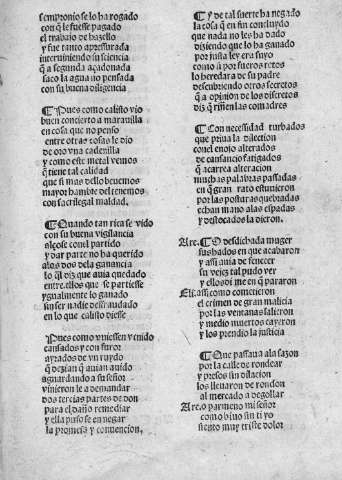 sempronio se lo ha rogado
con q̃ le fuesse pagado
el trabajo de hazello
y fue tanto apressurada
interuiniendo su sciencia
q̃ a segunda açadonada
saco la agua no pensada
con su buena diligencia
¶ Pues como calisto vio
buen concierto a marauilla
en cosa que no penso
entre otras cosas le dio
de oro vna cadenilla
y como este metal vemos
q̃ tiene tal calidad
que si mas dello beuemos
mayor hambre del tenemos
con sacrilega maldad.
¶ Quando tan rica se vido
con su buena vigilancia
alçose conel partido
y dar parte no ha querido
alos dos dela ganancia
lo q̃l diz que auia quedado
entre.ellos que se partiesse
ygualmente lo ganado
sin ser nadie defraudado
en lo que calisto diesse
Pues como viniessen enido
cansados y con furor
ayrados de vn ruydo
q̃ dezian q̃ auian auido
aguardando a su señor
vinieron le a demandar
dos tercias partes de don
para el daño remediar
y ella puso se en negar
la promessa y conuencion.
¶ Y de tal suerte ha negado
la cosa q̃ en fin concluydo
que nada no les ha dado
diziendo que lo ha ganado
por justa ley era suyo
como q̃ por sueros retos
lo heredara de su padre
descubriendo otros secretos
q̃ a opinion de los discretos
diz q̃ riñen las comadres
¶ Con necessidad turbados
que priua la dilection
conel enojo alterados
de cansancio fatigados
q̃ acarrea alteracion
muchas palabras passadas
en q̃ gran rato estuuieron
por las posturas quebradas
echan mano alas espadas
y destocados la dieron.
Are. ¶ O desdichada muger
sus hados en que acabaron
y assi auia de fenecer
su vejez tal pudo ver
y ellos di me en q̃ pararon
Eli. assi como cometieron
el crimen de gran malicia
por las ventanas salieron
y medio muertos cayeron
y los prendio la justicia
¶ Que passaua ala sazon
por la calle de rondear
y presos sin dilacion
los lleuaron de rondon
al mercado a degollar
Are. o parmeno mi señor
como biuo sin ti yo
siento muy triste dolor